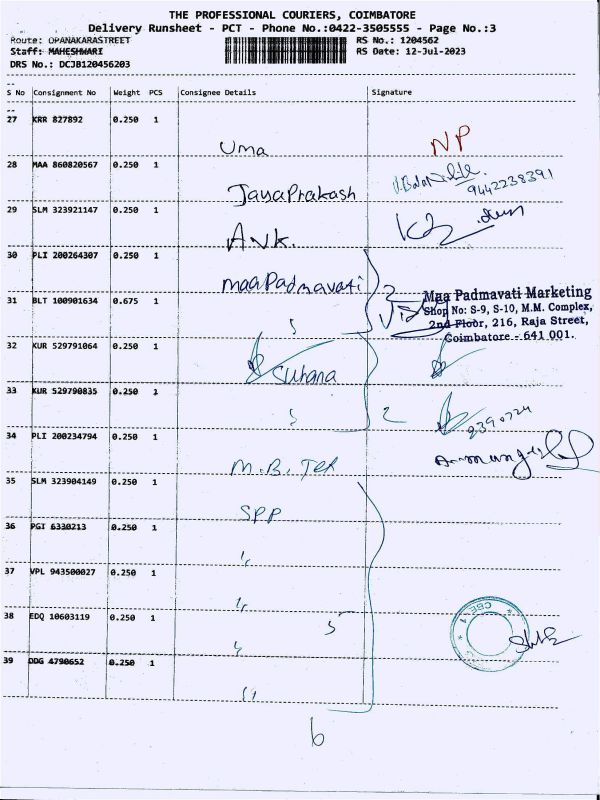 THE PROFESSIONAL COURIERS, COIMBATORE
Delivery Runsheet - PCT - Phone No.:0422-3505555 - Page No.:3
Route: OPANAKARASTREET RS No.: 1204562
Staff: MAHESHWARI RS Date: 12-Jul-2023
DRS No.: DCJB120456203
S No Consignment No Weight PCS Consignee Details Signature
27 KRR 827892 0.250 1
Uma NP
28 MAA 860820567 0.250 1
JayaPrakash 9442238391
29 SLM 323921147 0.250 1
A.V.K.
30 PLI 200264307 0.250 1
maaPadmavati 2
Maa Padmavati Marketing
31 BLT 100901634 0.675 1
Shop No: S-9, S-10, M.M. Complex,
2nd Floor, 216, Raja Street,
Coimbatore - 641 001.
32 KUR 529791064 0.250 1
Suhana
33 KUR 529790835 0.250 1
2
34 PLI 200234794 0.250 1
M.B. Tex
35 SLM 323904149 0.250 1
SPP
36 PGT 6330213 0.250 1
37 VPL 943500027 0.250 1
38 EDQ 10603119 0.250 1
5
39 DDG 4790652 0.250 1
6